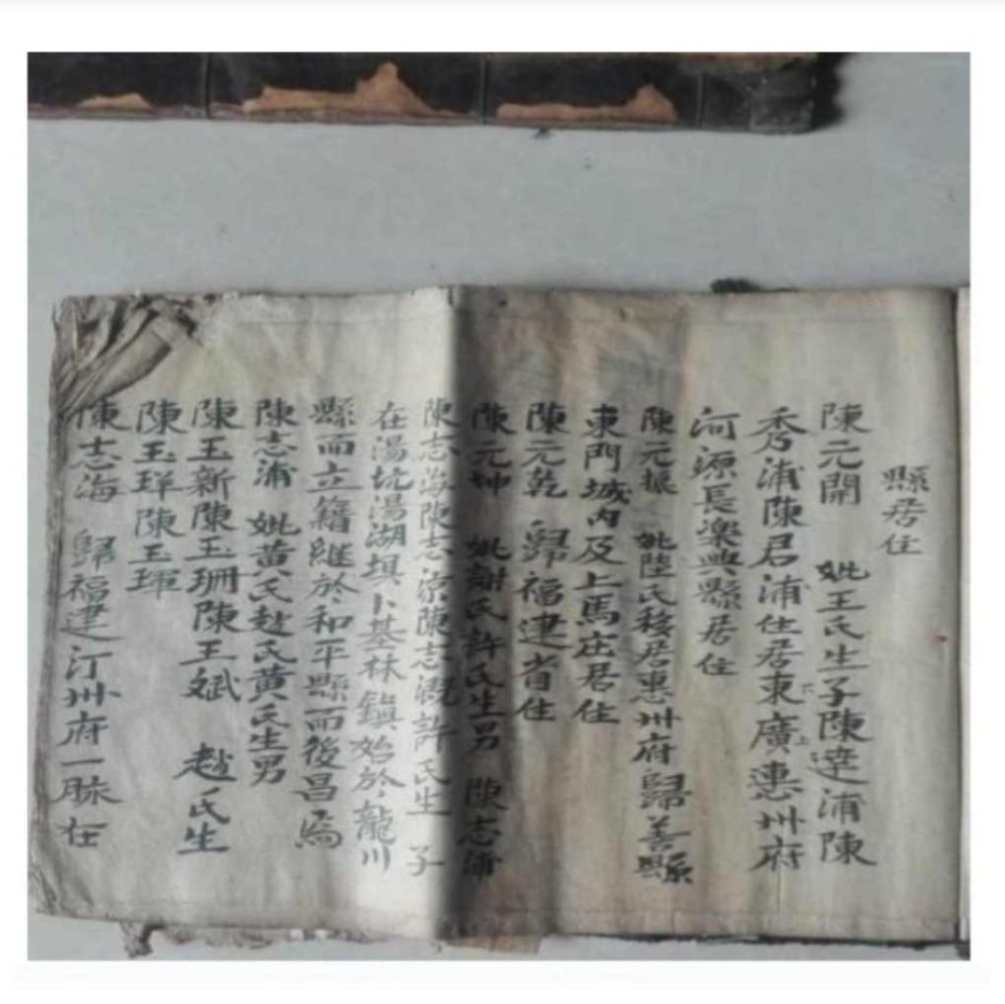 縣居住
陳元開 妣王氏生子陳達浦陳
秀浦陳君浦住居東廣惠州府
河源長樂興縣居住
陳元振 妣陸氏移居惠州府歸善縣
東門城內及上馬庄居住
陳元乾 歸福建省住
陳元坤 妣謝氏許氏生男 陳志浦
陳志海陳志涼陳志溉許氏生子
在湯坑湯湖埧卜基林鎮始於龍川
縣而立籍繼於和平縣而後昌焉
陳志浦 妣黄氏赵氏黄氏生男
陳玉新陳玉珊陳玉斌 赵氏生
陳玉琟陳玉琿
陳志海 歸福建汀州府一脉在